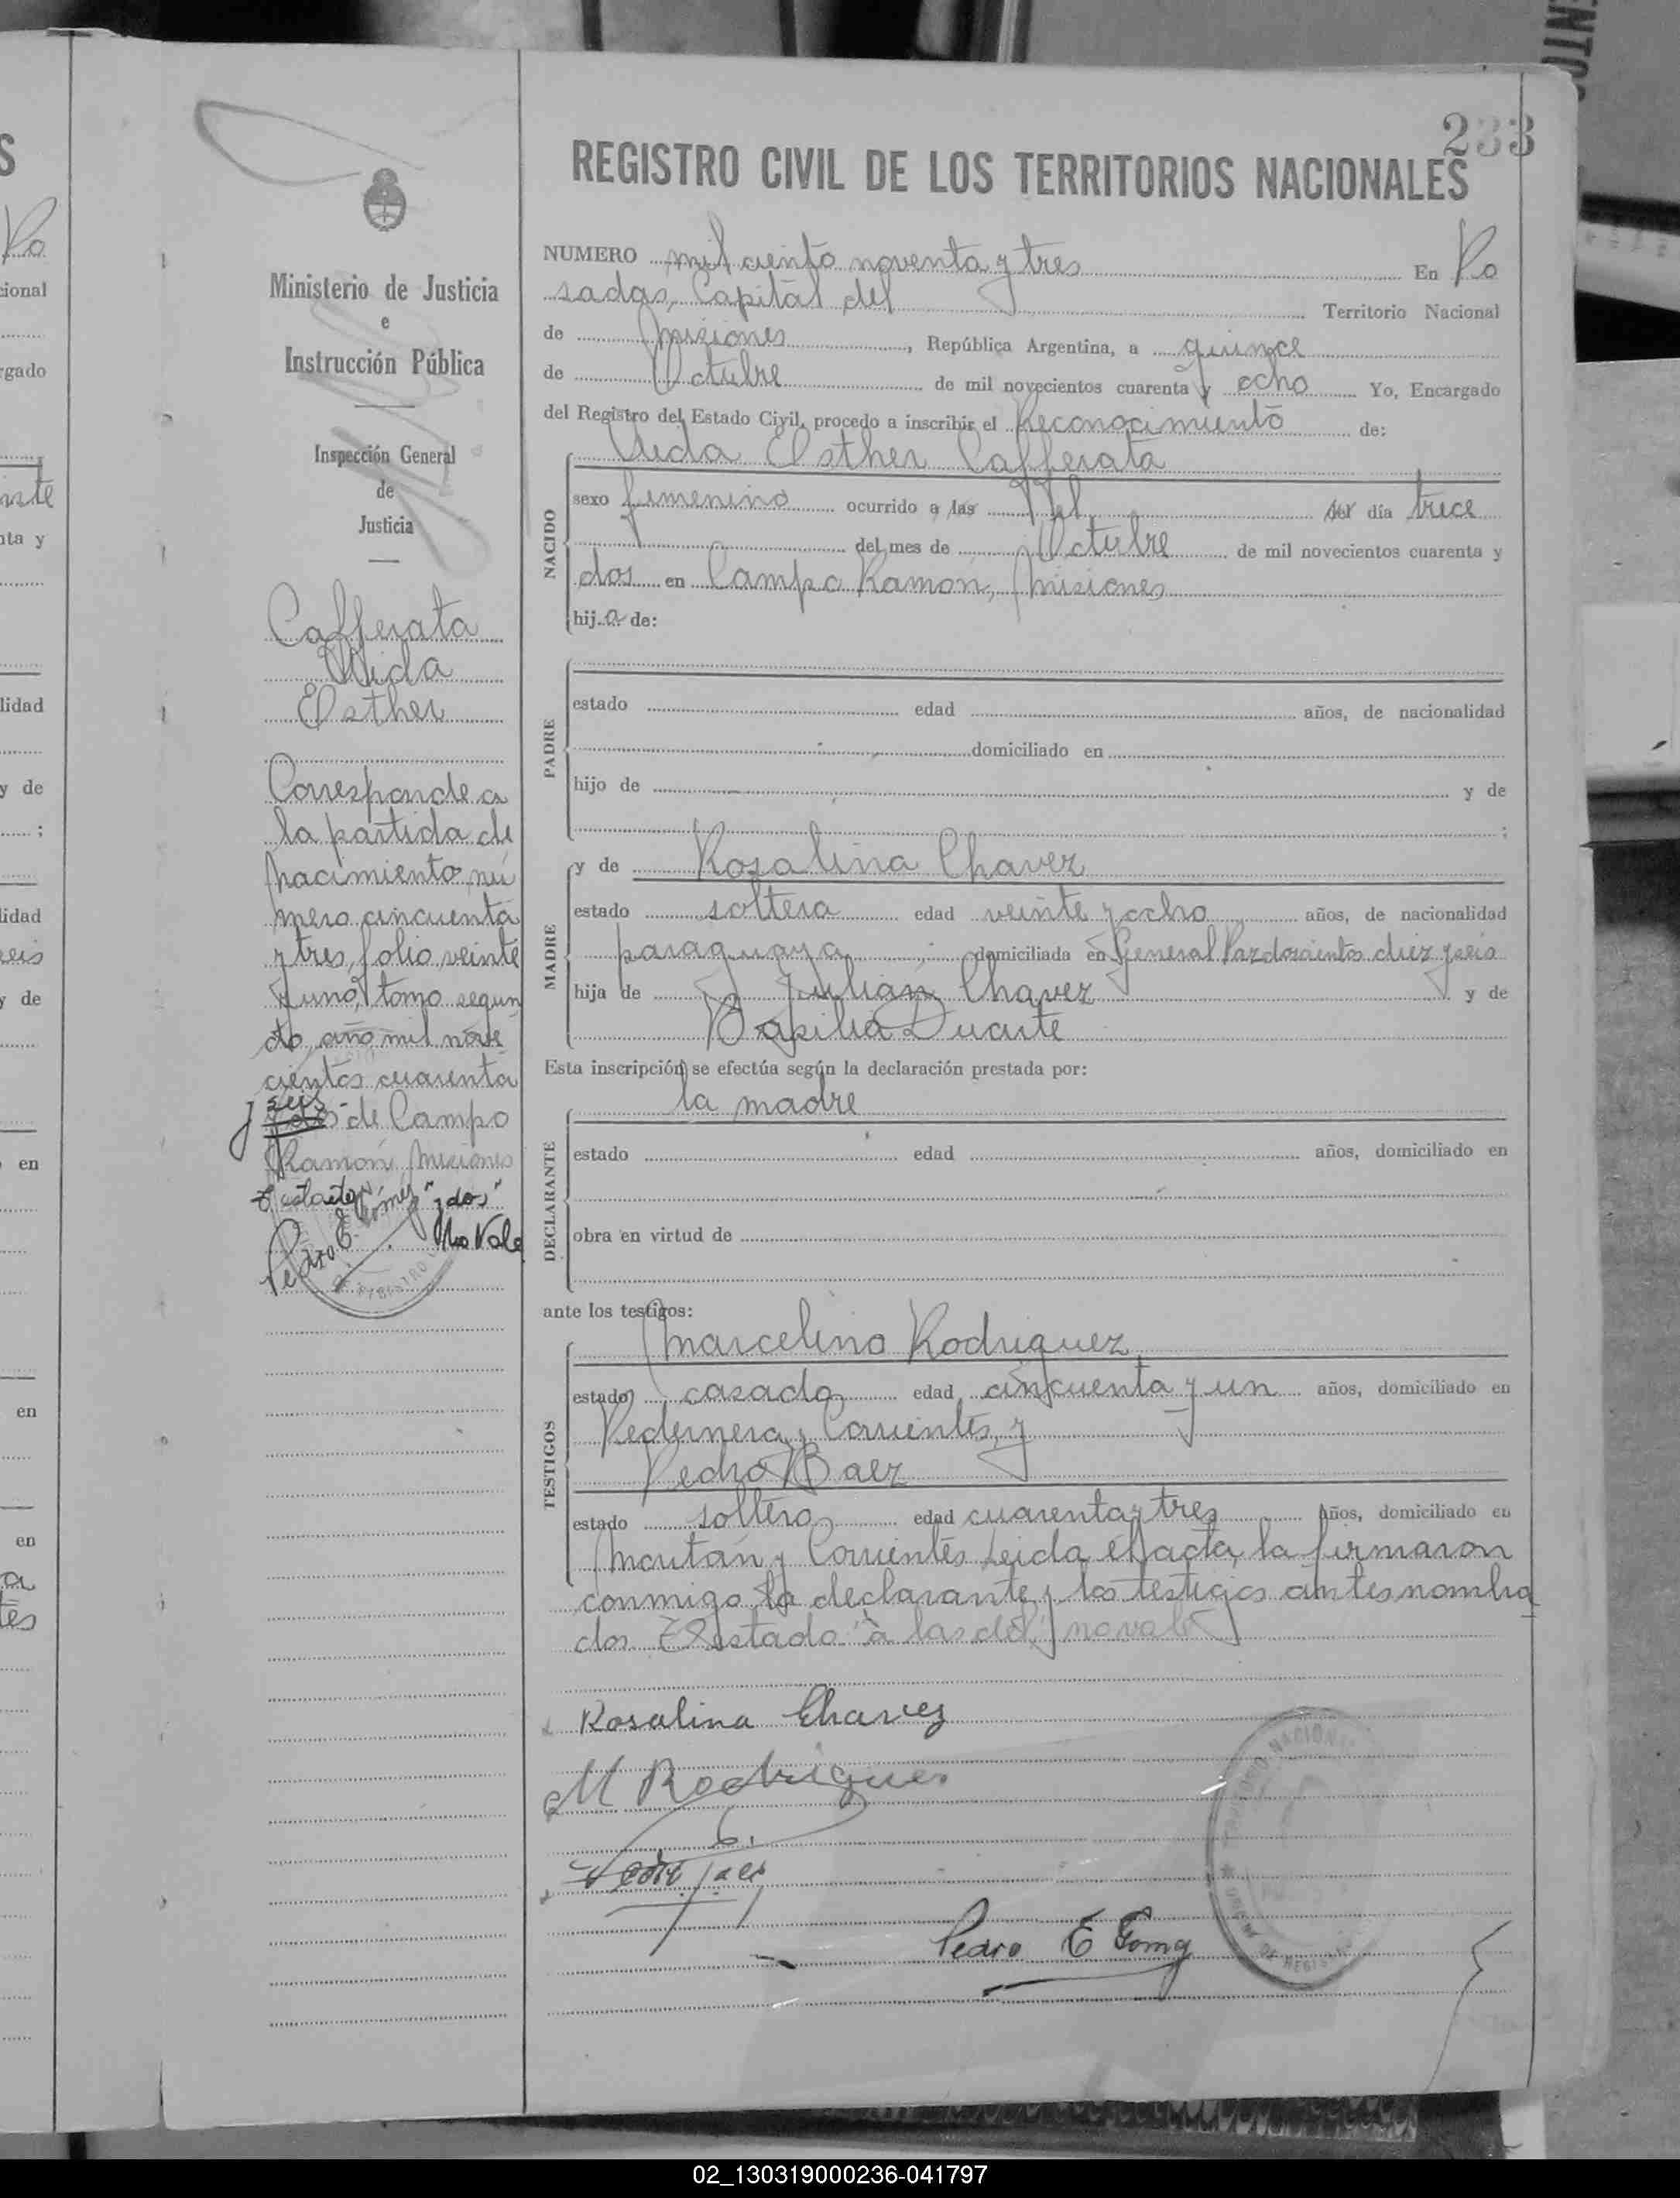 233
REGISTRO CIVIL DE LOS TERRITORIOS NACIONALES
Ministerio de Justicia
e
Instrucción Pública
Inspección General
de
Justicia
Cafferata
Aida
Esther
Corresponde a
la partida de
nacimiento nú
mero cincuenta
y tres, folio veinte
y uno, tomo segun
do año mil nove
cientos cuarenta
y seis
y dos de Campo
Ramón, Misiones
"y dos"
No Vale
Pedro E. Gómez
NUMERO mil ciento noventa y tres En Po
sadas, Capital del Territorio Nacional
de Misiones, República Argentina, a quince
de Octubre de mil novecientos cuarenta y ocho Yo, Encargado
del Registro del Estado Civil, procedo a inscribir el Reconocimiento de:
Aida Esther Cafferata
NACIDO
sexo femenino ocurrido a las El del día trece
del mes de Octubre de mil novecientos cuarenta y
dos en Campo Ramón, Misiones
hija de:
PADRE
estado edad años, de nacionalidad
domiciliado en
hijo de y de
;
MADRE
y de Rosalina Chavez
estado soltera edad veinte y ocho años, de nacionalidad
paraguaya domiciliada en General Paz doscientos diez y seis
hija de Julián Chavez y de
Basilia Duarte
Esta inscripción se efectúa según la declaración prestada por:
la madre
DECLARANTE
estado edad años, domiciliado en
obra en virtud de
ante los testigos:
TESTIGOS
Marcelino Rodriguez
estado casado edad cincuenta y un años, domiciliado en
Pedernera y Corrientes, y
Pedro Baez
estado soltero edad cuarenta y tres años, domiciliado en
y Corrientes Leida el acta, la firmaron
conmigo la declarante y los testigos antes nombra
dos E/ostado "a las del" no vale
Rosalina Chavez
M Rodrigues
Pedro E Gomez
02_130319000236-041797